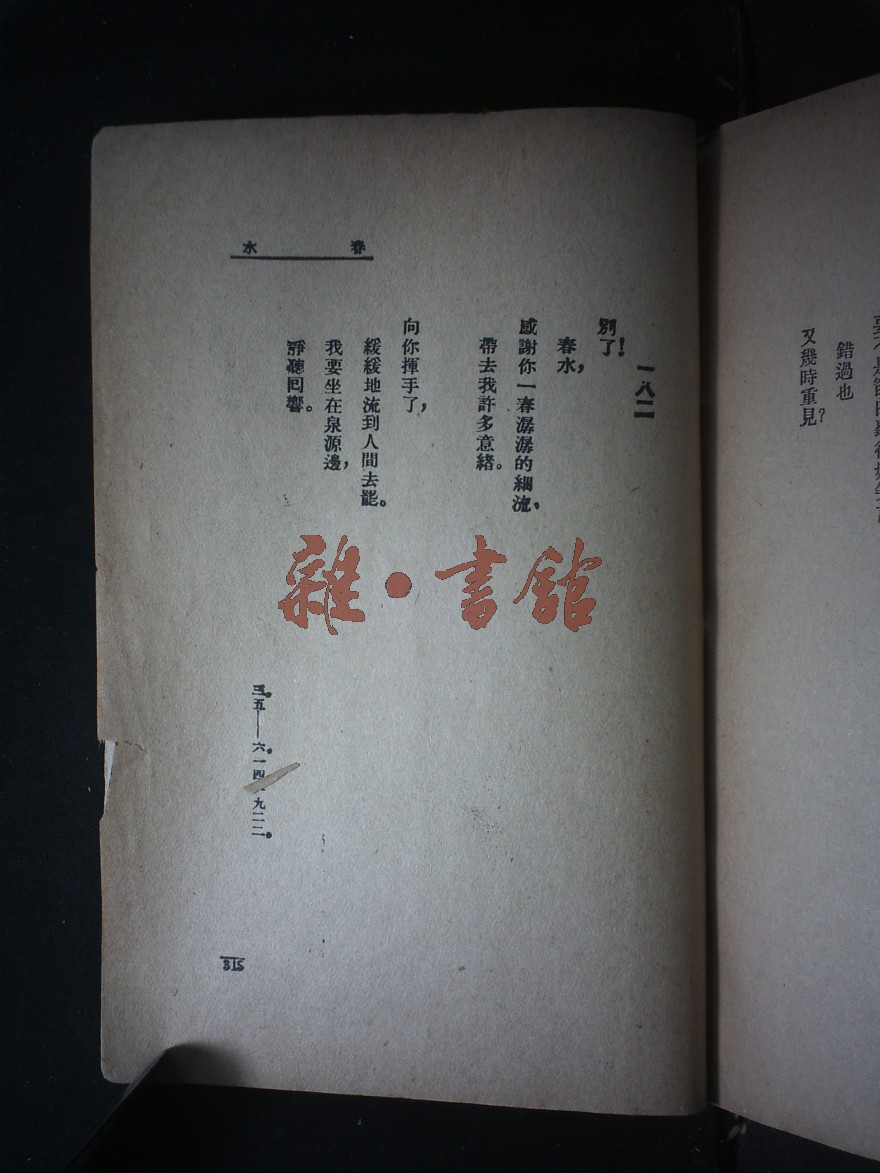 錯過也
又幾時重見？
一八二
別了！
春水，
感謝你一春潺潺的細流，
帶去我許多意緒。
向你揮手了，
緩緩地流到人間去罷。
我要坐在泉源邊，
靜聽回響。
春水
三，五——六，一四，九二二。
315
雜·書館